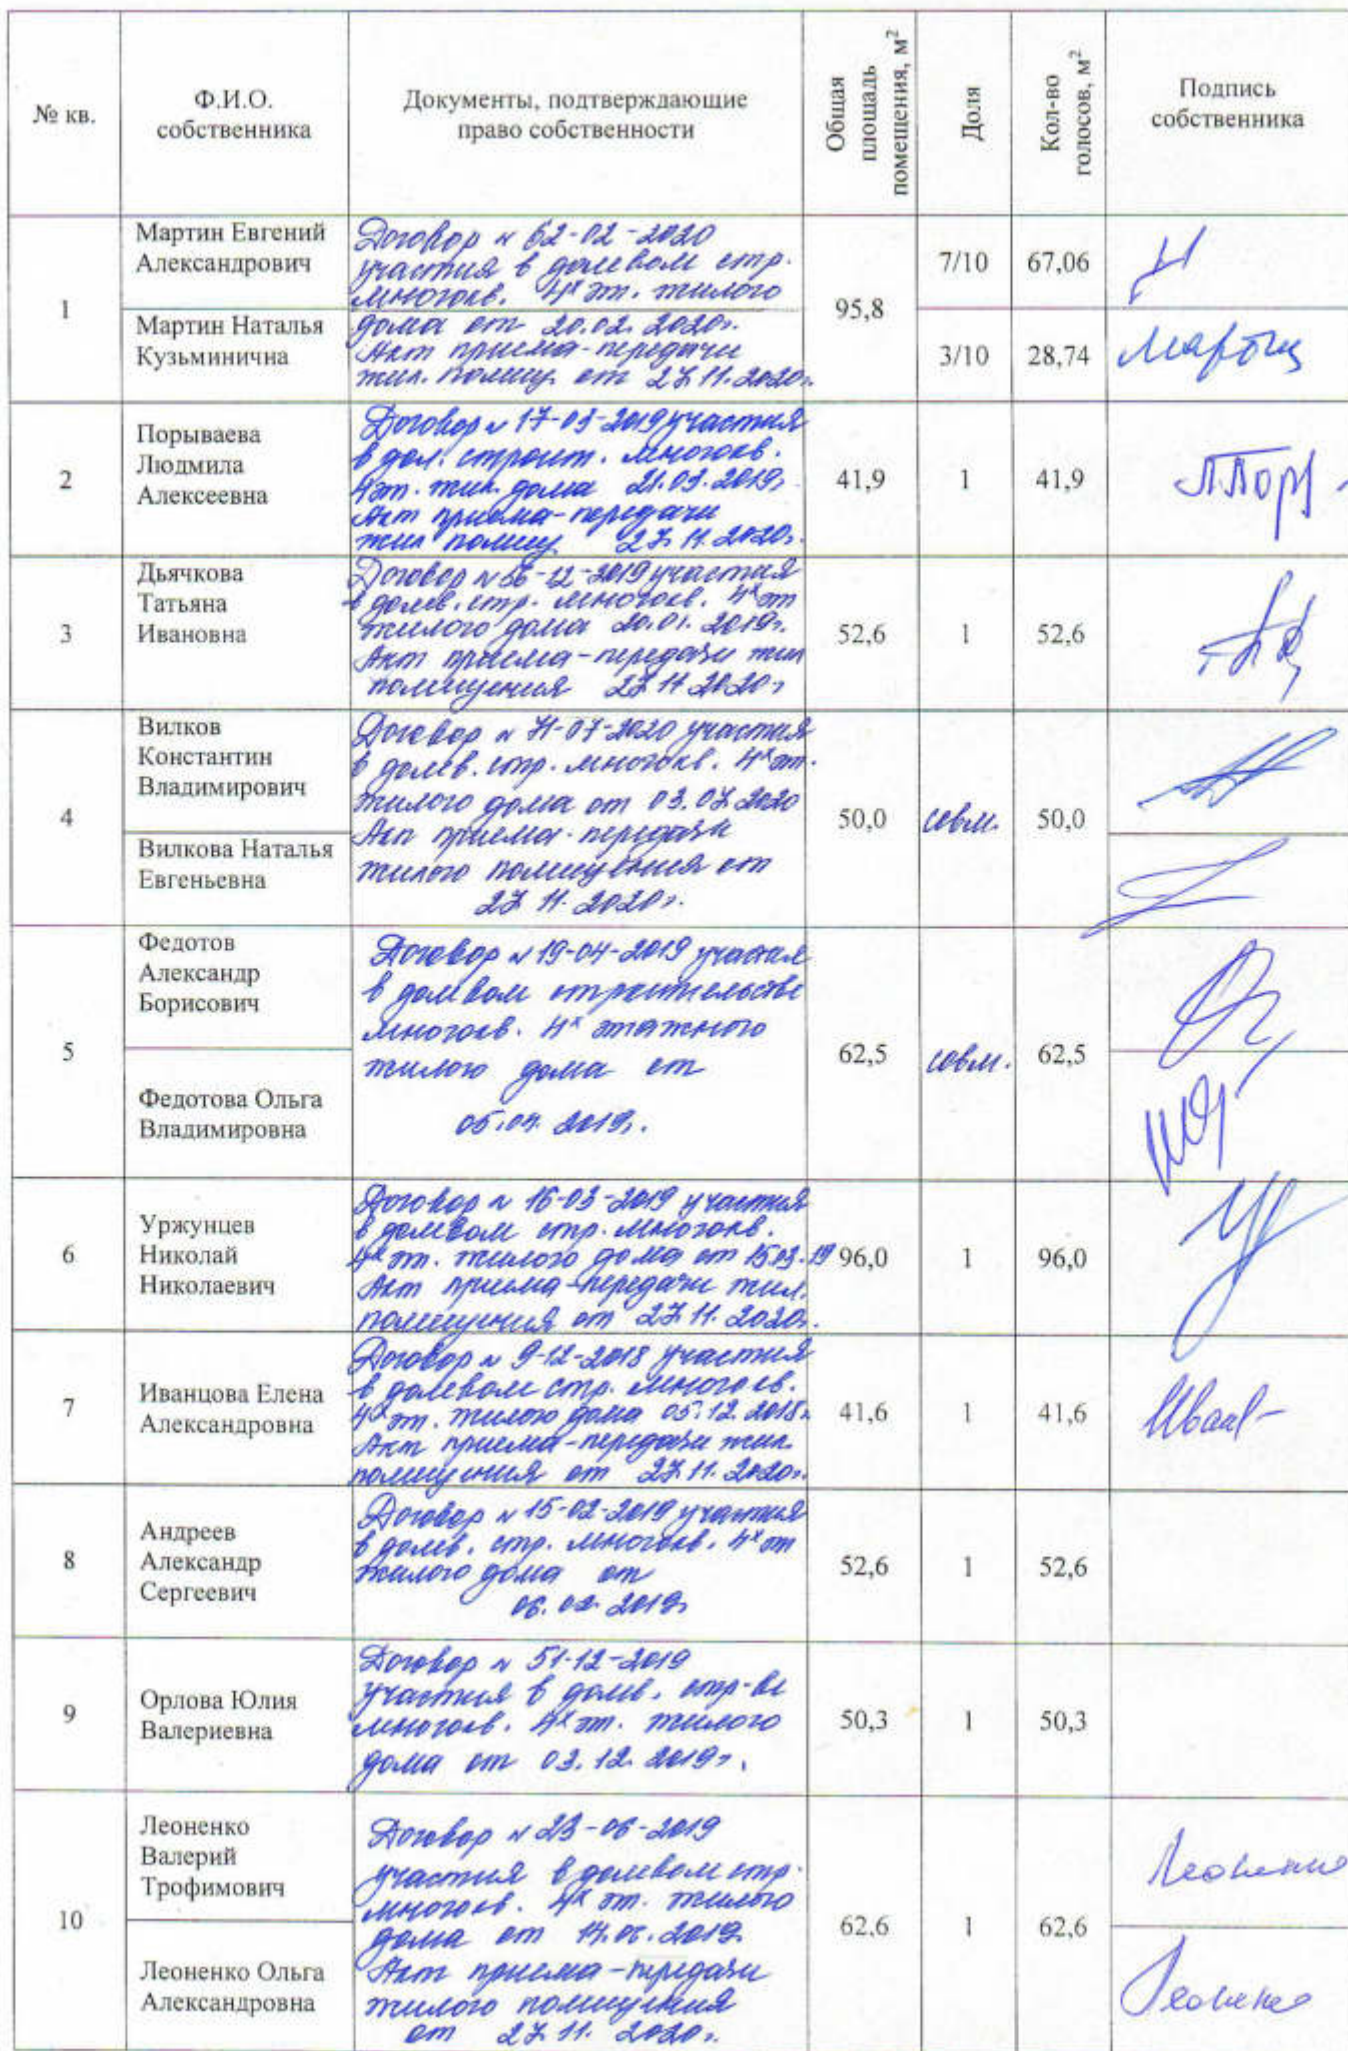 № кв.
Ф.И.О.
собственника
Документы, подтверждающие
право собственности
Общая
площадь
помещения, м²
Доля
Кол-во
голосов, м²
Подпись
собственника
1
Мартин Евгений
Александрович
Мартин Наталья
Кузьминична
Договор № 62-02-2020
участия в долевом стр.
многокв. 4х эт. жилого
дома от 20.02.2020г.
Акт приема-передачи
жил. помещ. от 27.11.2020г.
95,8
7/10
67,06
3/10
28,74
Мартин
2
Порываева
Людмила
Алексеевна
Договор № 17-03-2019 участия
в дол. строит. многокв.
4эт. жил. дома 21.03.2019г.
Акт приема-передачи
жил помещ. 27.11.2020г.
41,9
1
41,9
3
Дьячкова
Татьяна
Ивановна
Договор № 56-12-2019 участия
в долев. стр. многокв. 4х эт
жилого дома 20.01.2019г.
Акт приема-передачи жил
помещения 27.11.2020г
52,6
1
52,6
4
Вилков
Константин
Владимирович
Вилкова Наталья
Евгеньевна
Договор № 71-07-2020 участия
в долев. стр. многокв. 4х эт.
жилого дома от 03.07.2020
Акт приема-передачи
жилого помещения от
27.11.2020г.
50,0
совм.
50,0
5
Федотов
Александр
Борисович
Федотова Ольга
Владимировна
Договор № 19-04-2019 участия
в долевом строительстве
многокв. 4х этажного
жилого дома от
05.04.2019г.
62,5
совм.
62,5
6
Уржунцев
Николай
Николаевич
Договор № 16-03-2019 участия
в долевом стр. многокв.
4х эт. жилого дома от 15.03.19
Акт приема-передачи жил.
помещения от 27.11.2020г.
96,0
1
96,0
7
Иванцова Елена
Александровна
Договор № 9-12-2018 участия
в долевом стр. многокв.
4х эт. жилого дома 05.12.2018г.
Акт приема-передачи жил.
помещения от 27.11.2020г.
41,6
1
41,6
8
Андреев
Александр
Сергеевич
Договор № 15-02-2019 участия
в долев. стр. многокв. 4х эт
жилого дома от
06.02.2019г
52,6
1
52,6
9
Орлова Юлия
Валериевна
Договор № 51-12-2019
участия в долев. стр-ве
многокв. 4х эт. жилого
дома от 03.12.2019г.
50,3
1
50,3
10
Леоненко
Валерий
Трофимович
Леоненко Ольга
Александровна
Договор № 23-06-2019
участия в долевом стр.
многокв. 4х эт. жилого
дома от 14.06.2019
Акт приема-передачи
жилого помещения
от 27.11.2020г.
62,6
1
62,6
Леоненко
Леоненко